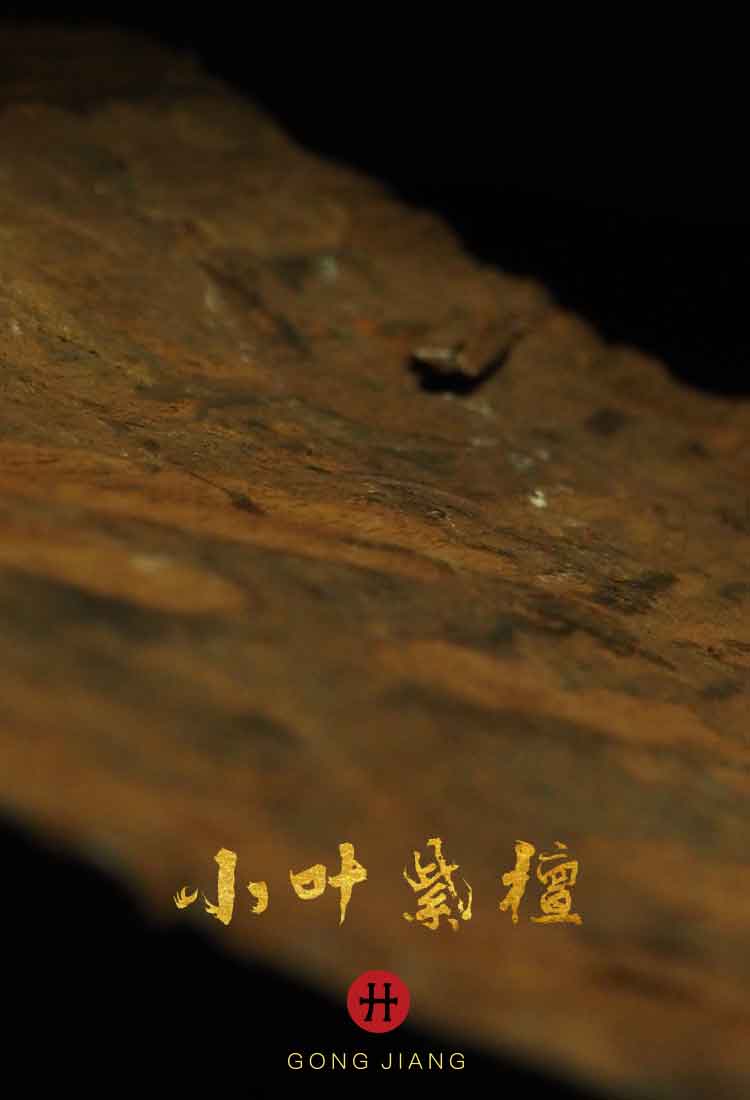 小叶紫檀
GONG JIANG